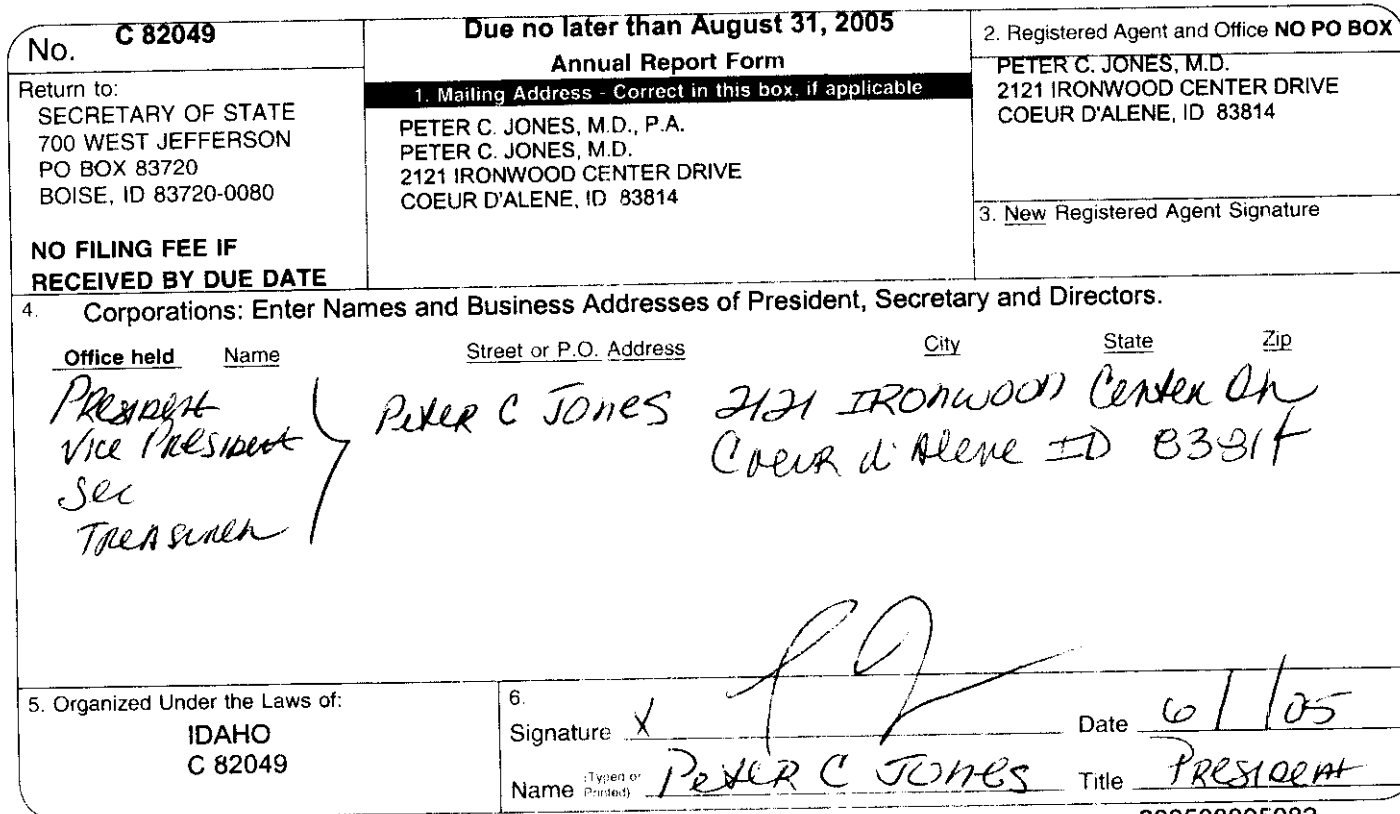 No. C 82049
Return to:
SECRETARY OF STATE
700 WEST JEFFERSON
PO BOX 83720
BOISE, ID 83720-0080
NO FILING FEE IF
RECEIVED BY DUE DATE
Due no later than August 31, 2005
Annual Report Form
1. Mailing Address - Correct in this box, if applicable
PETER C. JONES, M.D., P.A.
PETER C. JONES, M.D.
2121 IRONWOOD CENTER DRIVE
COEUR D'ALENE, ID 83814
2. Registered Agent and Office NO PO BOX
PETER C. JONES, M.D.
2121 IRONWOOD CENTER DRIVE
COEUR D'ALENE, ID 83814
3. New Registered Agent Signature
4. Corporations: Enter Names and Business Addresses of President, Secretary and Directors.
Office held Name Street or P.O. Address City State Zip
President Peter C Jones 2121 Ironwood Center Dr
Vice President Coeur d'Alene ID 83814
Sec
Treasurer
5. Organized Under the Laws of:
IDAHO
C 82049
6.
Signature X Date 6/ /05
Name (Typed or Printed) Peter C Jones Title President